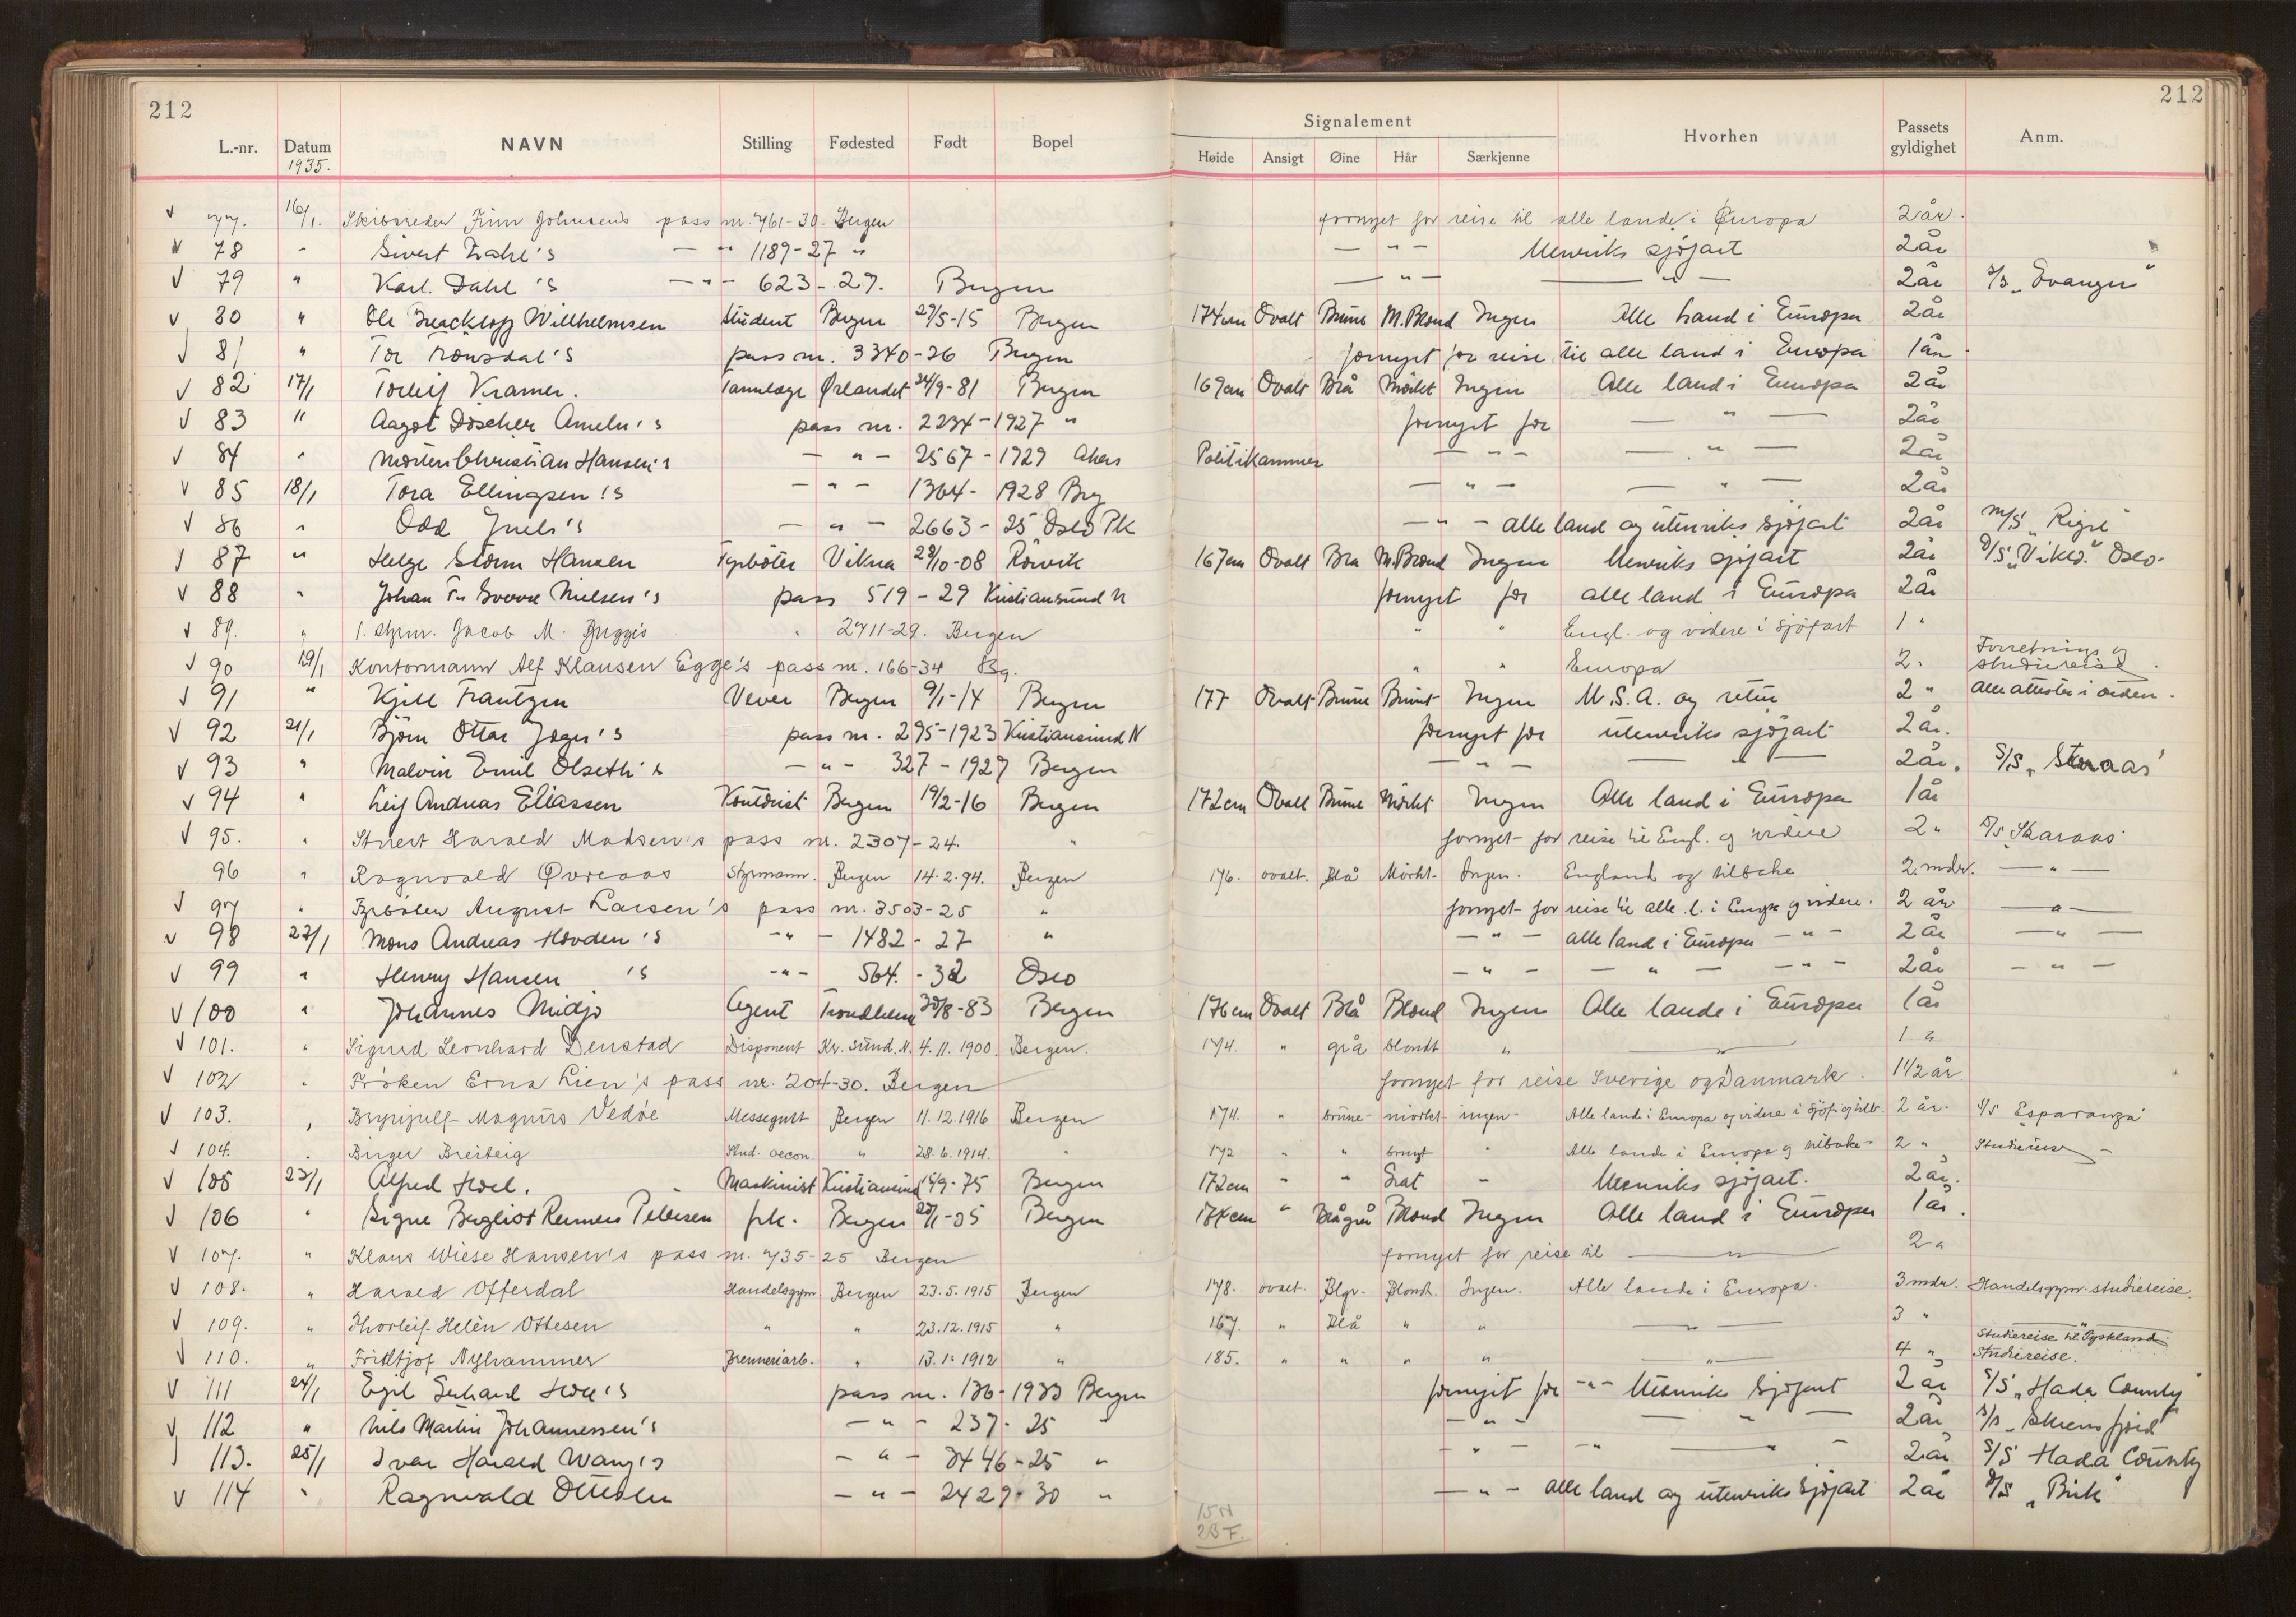 212 212
L.-nr. Datum NAVN Stilling Fødested Født Bopel Signalement Hvorhen Passets gyldighet Anm.
1935. Høide Ansigt Øine Hår Særkjenne
v 77. 16/1. Skibsreder Finn Johnsen's pass nr. 761-30. Bergen fornyet for reise til alle lande i Europa 2 år.
v 78 " Sivert Dahl's — " 1189-27 " — " — Utenriks sjøfart 2 år
v 79 " Karl. Dahl's — " — 623-27. Bergen — " — — " — 2 år S/S „Evanger"
v 80 " Ole Willhelmsen Student Bergen 27/5-15 Bergen 174 cm Ovalt Brune M. Blond Ingen Alle land i Europa 2 år
v 81 " Tor Trønsdal's pass nr. 3340-26 Bergen fornyet for reise til alle land i Europa 1 år.
v 82 17/1 Torleif Kramer. Tannlæge Ørlandet 24/9-81 Bergen 169 cm Ovalt Blå Mørkt Ingen Alle land i Europa 2 år
v 83 " Aagot Døscher Ameln's pass nr. 2234-1927 " fornyet for — " — 2 år
v 84 " Morten Christian Hansen's — " — 2567-1929 Akers Politikammer — " — — " — 2 år
v 85 18/1 Tora Ellingsen's — " — 1364-1928 Brg — " — — " — 2 år
v 86 " Odd Juels's — " — 2663-25 Oslo Pk — " — alle land og utenriks sjøfart 2 år M/S „Rigel"
v 87 " Helge Storm Hansen Fyrbøter Vikna 28/10-08 Rørvik 167 cm Ovalt Bla M. Blond Ingen Utenriks sjøfart 2 år D/S „Viked" Oslo.
v 88 " Johan Fr. Sverre Nielsen's pass 519-29 Kristiansund N fornyet for alle land i Europa 2 år
v 89. " 1. styrm. Jacob M. Bugge's " 2711-29. Bergen " " Engl. og videre i sjøfart 1 "
v 90 19/1 Kontormann Alf Klausen Egge's pass nr. 166-34 Bg. " " Europa 2. Forretnings og studiereise.
v 91 " Kjell Frantzen Vever Bergen 9/1-14 Bergen 177 Ovalt Brune Brunt Ingen U.S.A. og retur 2 " Alle attester i orden.
v 92 21/1 Bjørn Ottar Jæger's pass nr. 295-1923 Kristiansund N fornyet for utenriks sjøfart 2 år.
v 93 " Malvin Emil Olseth's — " — 327-1927 Bergen — " — — " — 2 år. S/S „Skaraas"
v 94 " Leif Andreas Eliassen Kontorist Bergen 19/2-16 Bergen 172 cm Ovalt Brune Mørkt Ingen Alle land i Europa 1 år
v 95. " Harald Madsen's pass nr. 2307-24. " fornyet for reise til Engl. og videre 2 " D/S „Skaraas"
96 " Ragnvald Øvreaas Styrmann. Bergen 14.2.94. Bergen 176. ovalt. Blå Mørkt. Ingen. England og tilbake 2 mdr. — " —
v 97 " Fyrbøter August Larsen's pass nr. 3503-25 " fornyet for reise til alle l. i Europa og videre. 2 år — " —
v 98 22/1 Mons Andreas Hovden's — " — 1482-27 " — " — alle land i Europa — " — 2 år — " —
v 99 " Henry Hansen's — " — 564.-32 Oslo — " — — " — — " — 2 år — " —
v 100 " Johannes Midjo Agent Trondheim 30/8-83 Bergen 176 cm Ovalt Blå Blond Ingen Alle lande i Europa 1 år
v 101. " Sigurd Leonhard Denstad Disponent Kr. sund. N. 4.11.1900. Bergen. 174. " grå blondt " — " — 1 "
v 102 " Frøken Erna Lien's pass nr. 204-30. Bergen fornyet for reise Sverige og Danmark. 1 1/2 år.
v 103. " Brynjulf Magnus Vedøe Messegutt Bergen 11.12.1916 Bergen 174. " brune mørkt ingen Alle lande i Europa og videre i sjøf. og tilb. 2 år. S/S „Esparanza"
v 104. " Birger Breiteig Stud. oecon. " 28.6.1914. " 172 " " brunt " Alle lande i Europa og tilbake 2 " Studiereise
v 105 23/1 Alfred Hoel. Maskinist Kristiansund 15/9-75 Bergen 172 cm " " Grat " Utenriks sjøfart. 2 år.
v 106 " Signe Bergliot Reimers Pettersen frk. Bergen 22/1-05 Bergen 174 cm " Blågrå Blond Ingen Alle land i Europa 1 år.
v 107. " Klaus Wiese Hansen's pass nr. 735-25 Bergen fornyet for reise til — " — 2 "
v 108. " Harald Offerdal Handelsgym Bergen 23.5.1915 Bergen 178. ovalt. Blgr. Blondt. Ingen. Alle lande i Europa. 3 mdr. Handelsgym. studiereise.
v 109. " Thorleif Helèn Ottesen " " 23.12.1915 " 167. " Blå " " — " — 3 " "
v 110. " Fridtjof Nyhammer Brenneriarb. " 13.1.1912 " 185. " " " " — " — 4 " Studiereise til Tyskland. Studiereise.
v 111 24/1 Egil Gerhard Hoel's pass nr. 136-1933 Bergen fornyet for — " — Utenriks Sjøfart 2 år S/S „Hada County"
v 112 " Nils Martin Johannessen's — " — 237-25 " — " — — " — 2 år S/S „Skiensfjord"
v 113. 25/1 Ivar Harald Wang's — " — 3446-25 " — " — — " — 2 år S/S Hada County
v 114 " Ragnvald Ottesen — " — 2429-30 " — " — alle land og utenriks Sjøfart 2 år D/S „Birk"
15 N
23 F.